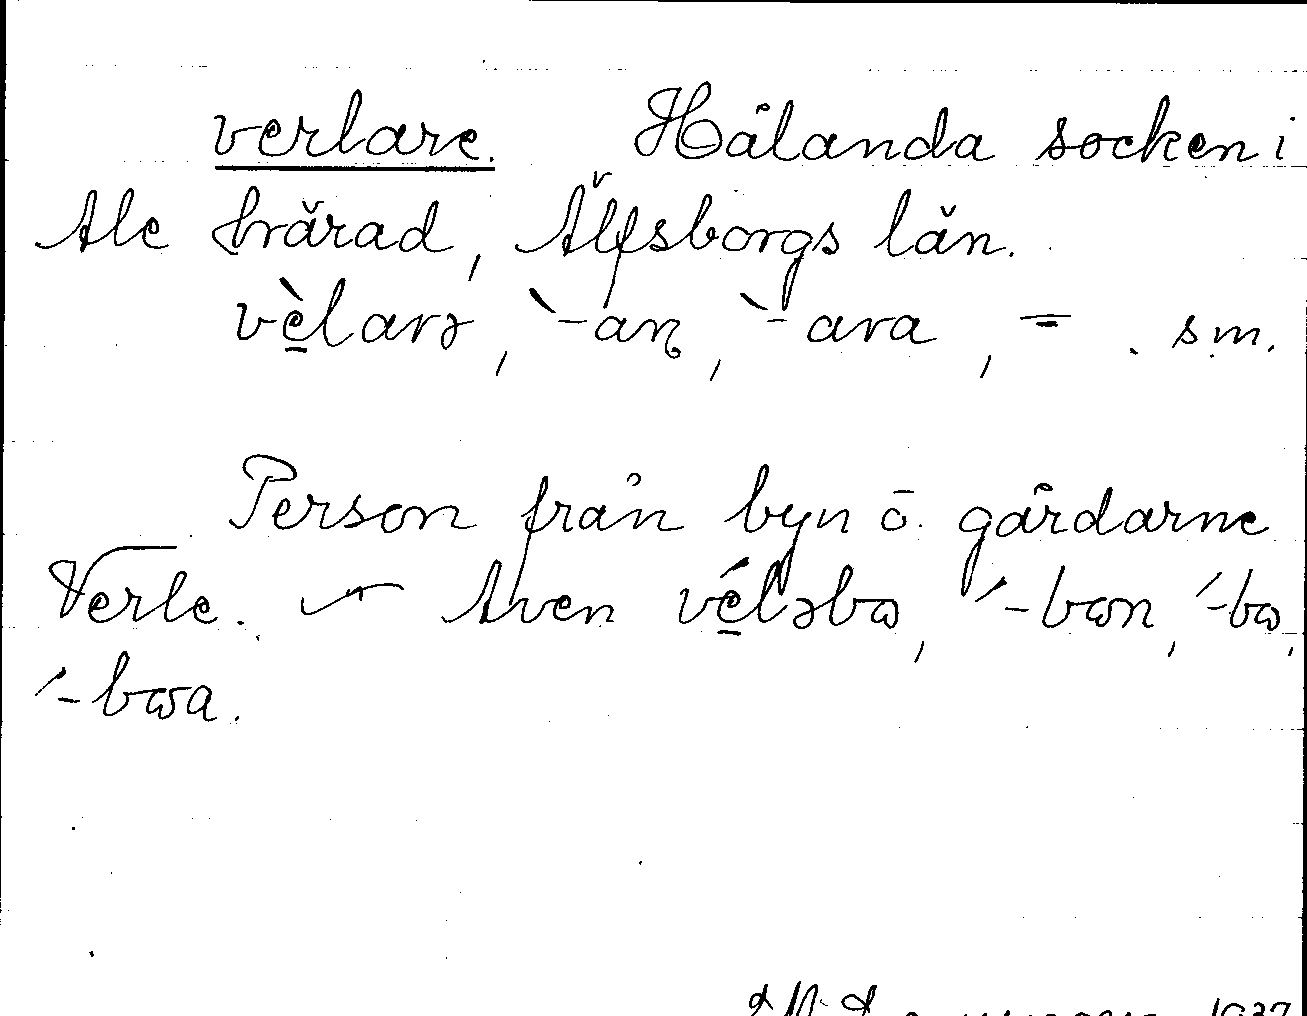 verlare. Hålanda socken i
Ale härad, Älfsborgs län.
vèlarə, `-an, `-ara, = . sm.
Person från byn o. gårdarne
Verle. Även véləbω, ´-bωn, ´-bω,
´-bωa.
1937